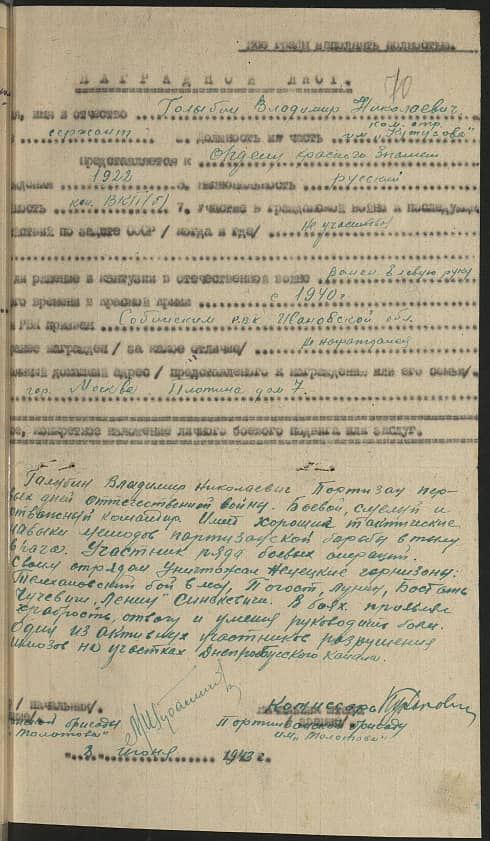 все графы заполнять полностью.
70
НАГРАДНОЙ ЛИСТ.
я, имя и отчество Голыбин Владимир Николаевич
ком. отр.
сержант 2. Должность и часть им. "Кутузова"
представляется к ордену красного знамени
1922 5. национальность русский
ность кан. ВКП/б/ 7. Участие в гражданской войне и последую
йствий по защите СССР / когда и где/ Не участвовал
ли ранение и контузии в отечественной войне Ранен в левую руку
го времени в Красной Армии с 1940 г.
м РВК призван Собинским рвк Ивановской обл.
ранее награжден / за какое отличие/ Не награждался
нный домашний адрес / представляемого к награждению или его семьи/
гор. Москва Плотина дом 7.
ое, конкретное изложение личного боевого подвига или заслуг.
Голубин Владимир Николаевич Портизан пер-
вых дней оттечественной войны. Боевой, смелый и
командир. Имеет хороший тактические
навыки методов партизанской борьбы в тылу
врага. Участник ряда боевых операций.
Своим отрядом уничтожал немецкие горнизоны:
Телехановский бой в мае, Погост, Лунин,
Синкевичи. В боях проявлял
храбрость, отвагу и умения руководить боем.
один из активных участников разрушения
шлюзов на участках Днепробугского канала.
/ начальник/. Комиссар
ской бригады Портизанской бригады
"Молотова" им. "Молотова"
2 июня 1943 г.